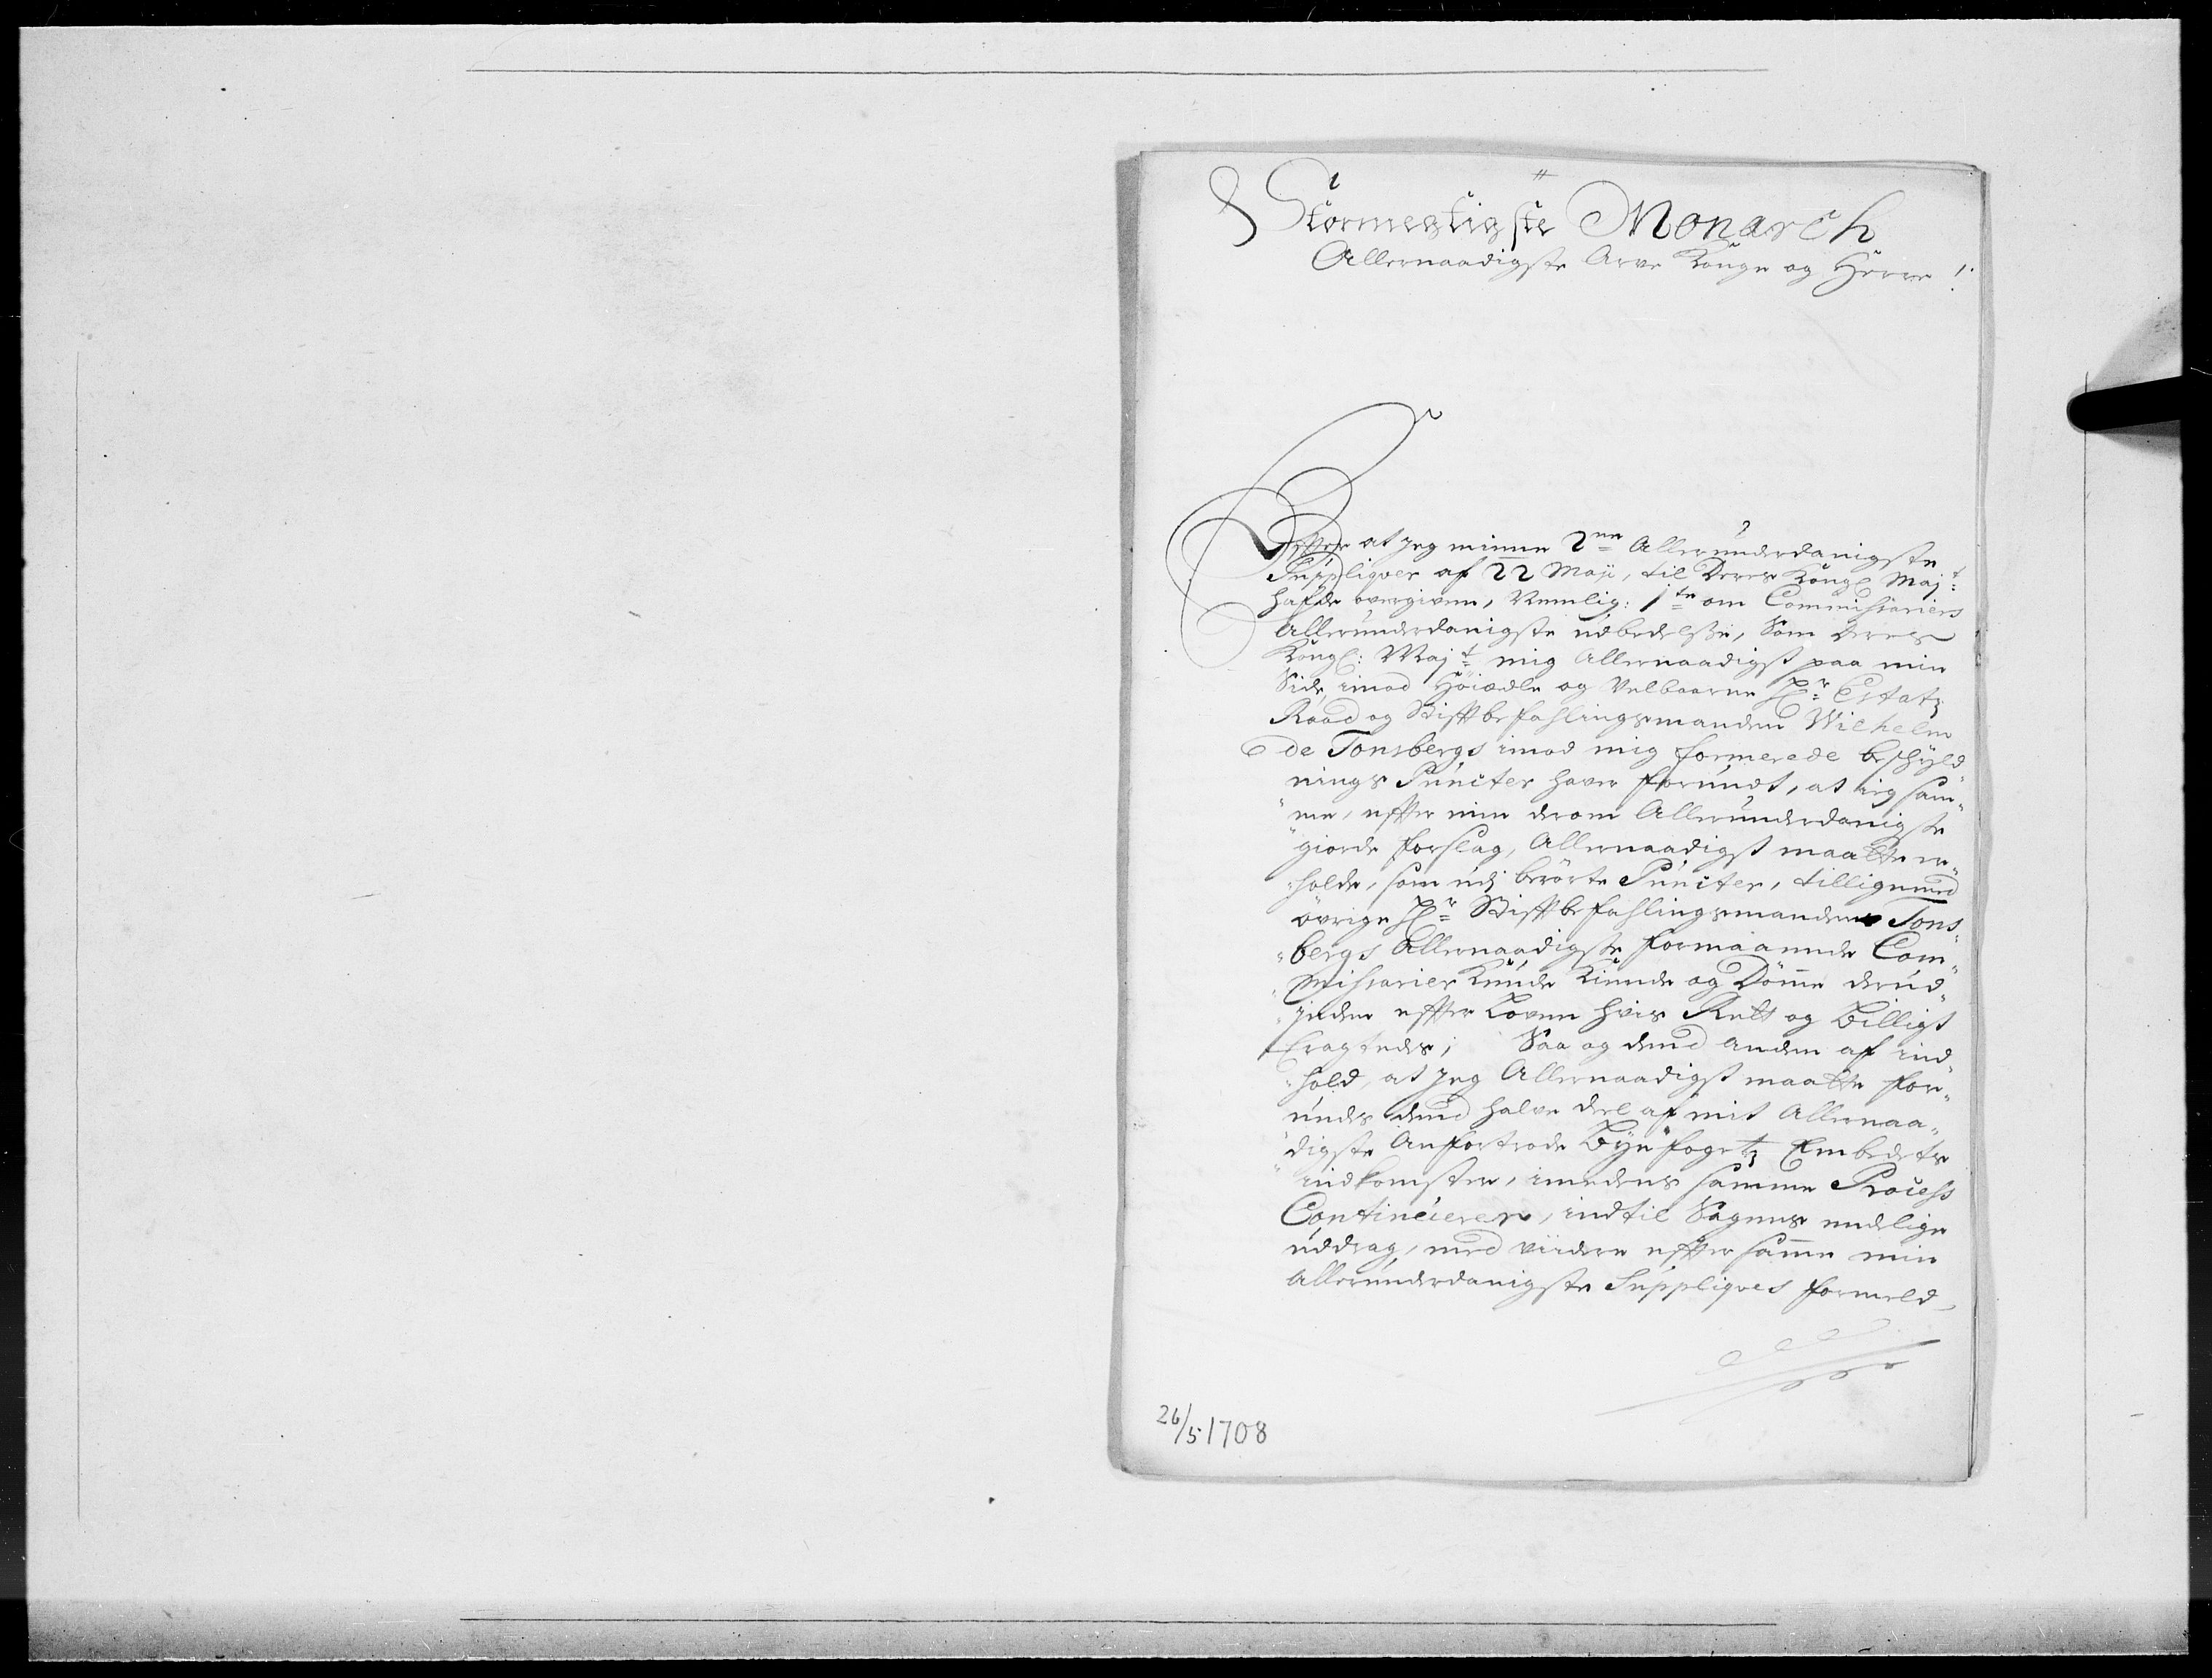 Stormegtigste Monarch
Allernaadigste Arve Konge og Herre!
Efter at jeg minne 2ne Allerunderdanigste
Suppliqver af 22 Maji, til Deres Kongl Majt:
hafde overgiven, Nemlig: 1te om Commissariers
Allerunderdanigste udbedelsse, Som Deres
Kongl: Majt mig Allernaadigst paa min
Side, imod Höiædle og Velbaarne Hr Estatz
Raad og Stiftbefahlingsmanden Wilhelm
de Tonsbergs imod mig formerede beschyld
nings Puncter haver forundt, at ieg sam¬
me, efter min derom Allerunderdanigste
giorde forslag, Allernaadigst maatte er¬
holde, som udj berörte Puncter, tilligemed
övrige Hr Stiftbefahlingsmandens Tons¬
bergs Allernaadigste formaaende Com¬
missarier Kunde Kiende og Dömme derud¬
jnden efter Loven hvis Rett og Billigt
Eragtedes; Saa og dend anden af ind¬
hold, at jeg Allernaadigst maatte for¬
undes dend halve deel af mit Allernaa¬
digste Anfortrode Bye fogetz Embedets
indkomster, imedens samme Process
Contineierer, indtil Sagens endelige
uddrag, med viidere efter samme min
Allerunderdanigste Suppliqves formeld,
26/5 1708